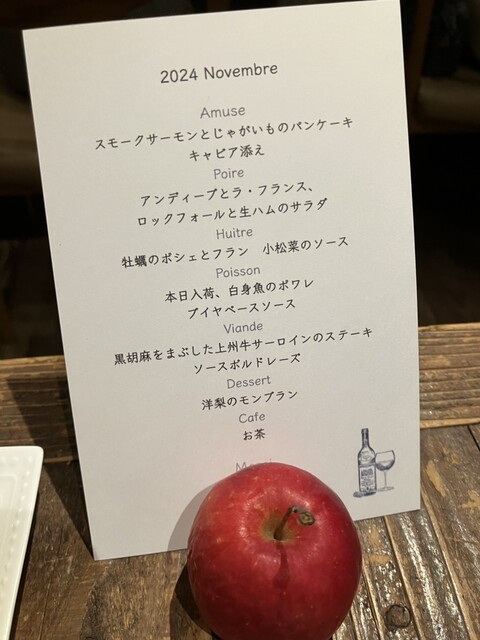 2024 Novembre
Amuse
スモークサーモンとじゃがいものパンケーキ
キャビア添え
Poire
アンディーブとラ・フランス、
ロックフォールと生ハムのサラダ
Huitre
牡蠣のポシェとフラン　小松菜のソース
Poisson
本日入荷、白身魚のポワレ
ブイヤベースソース
Viande
黒胡麻をまぶした上州牛サーロインのステーキ
ソースボルドレーズ
Dessert
洋梨のモンブラン
Cafe
お茶